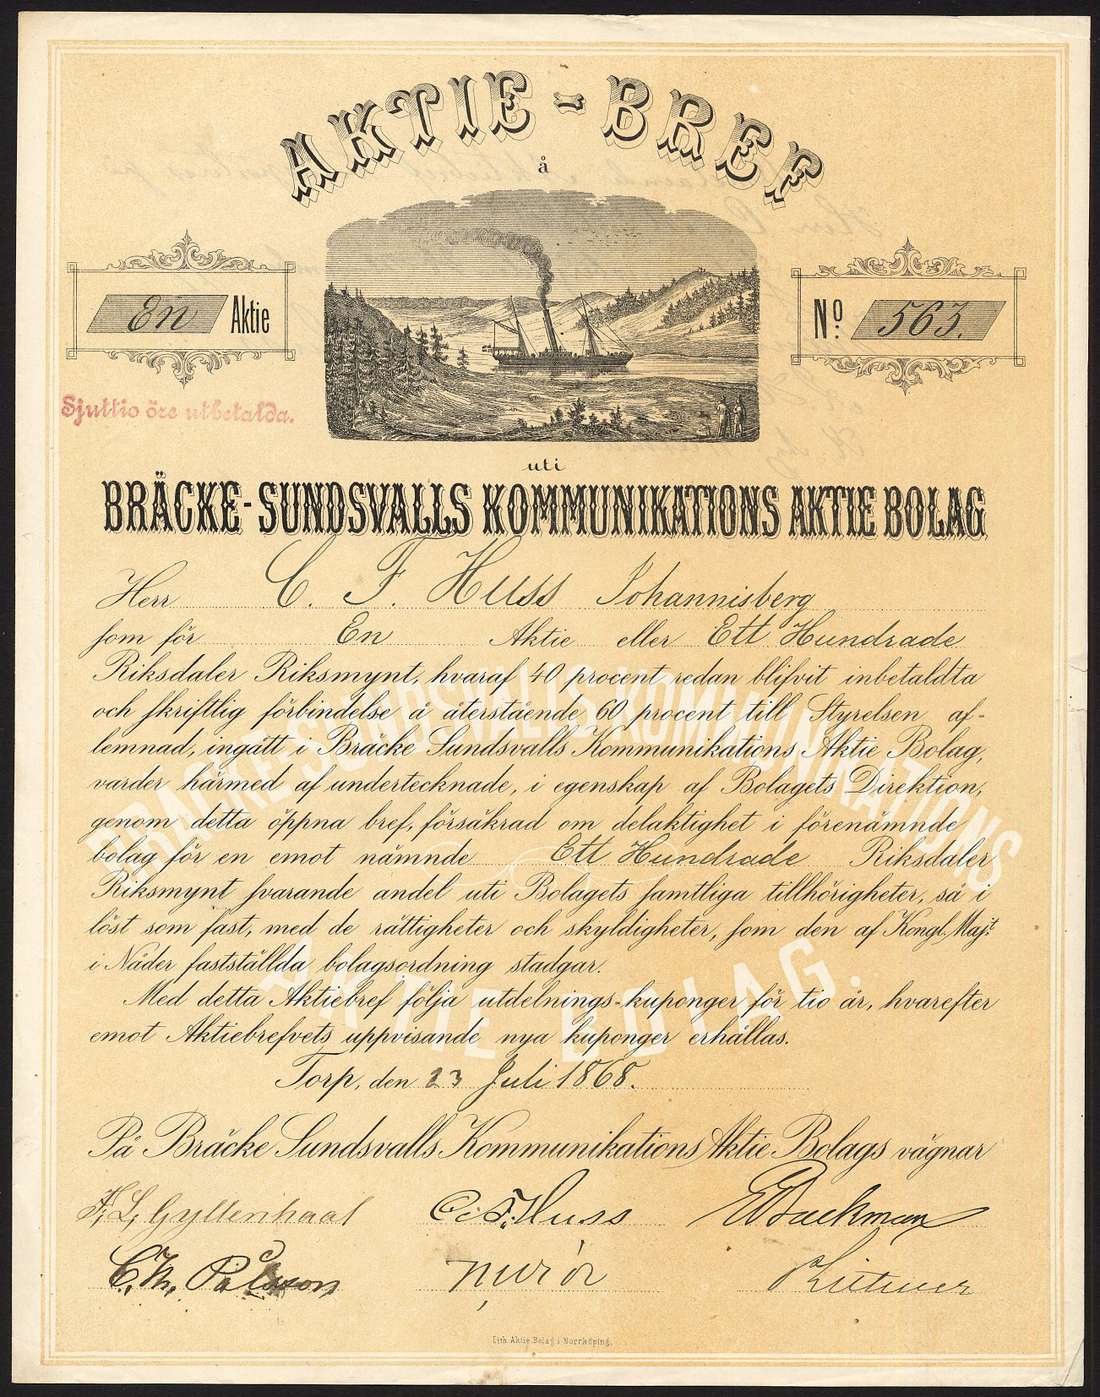 AKTIE-BREF
å
En Aktie
No 563.
Sjuttio öre utbetalda.
uti
BRÄCKE-SUNDSVALLS KOMMUNIKATIONS AKTIE BOLAG
Herr C. F. Huss Johannisberg
som för En Aktie eller Ett Hundrade
Riksdaler Riksmynt, hvaraf 40 procent redan blifvit inbetaldta
och skriftlig förbindelse å återstående 60 procent till Styrelsen af-
lemnad, ingått i Bräcke Sundsvalls Kommunikations Aktie Bolag,
varder härmed af undertecknade, i egenskap af Bolagets Direktion,
genom detta öppna bref, försäkrad om delaktighet i förenämnde
bolag för en emot nämnde Ett Hundrade Riksdaler
Riksmynt svarande andel uti Bolagets samtliga tillhörigheter, så i
löst som fast, med de rättigheter och skyldigheter, som den af Kongl. Maj:t
i Nåder fastställda bolagsordning stadgar.
Med detta Aktiebref följa utdelnings-kuponger för tio år, hvarefter
emot Aktiebrefvets uppvisande nya kuponger erhållas.
Torp, den 23 Juli 1868.
På Bräcke Sundsvalls Kommunikations Aktie Bolags vägnar
F. L. Gyllenhaal C. F. Huss E Backman
C. M. Pålsson
Lith. Aktie Bolag i Norrköping.
BRÄCKE SUNDSVALLS KOMMUNIKATIONS
AKTIE BOLAG.